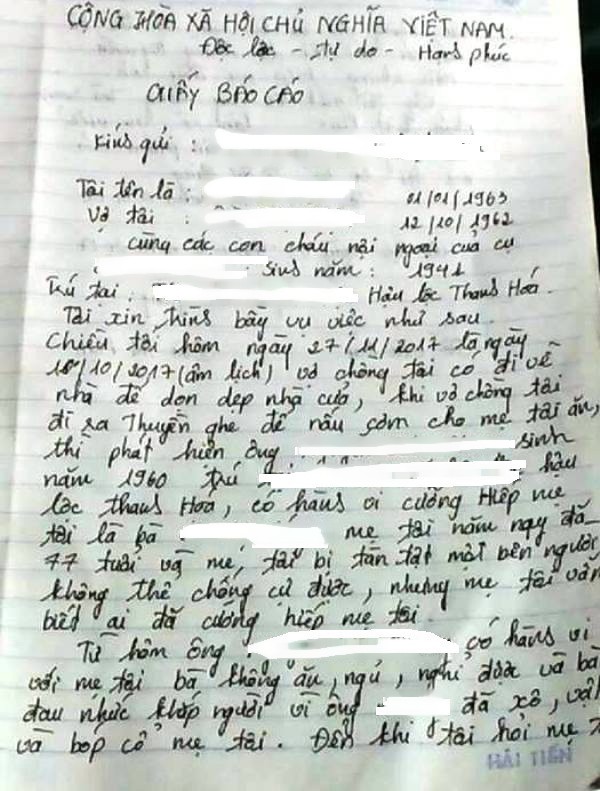 CỘNG HÒA XÃ HỘI CHỦ NGHĨA VIỆT NAM.
Độc lập - Tự do - Hạnh phúc
GIẤY BÁO CÁO
Kính gửi :
Tôi tên là : 01/01/1963
Vợ tôi : 12/10/1962
cùng các con cháu nội ngoại của cụ
Sinh năm : 1941
Trú tại : Hậu lộc Thanh Hoá.
Tôi xin trình bày vụ việc như sau.
Chiều tối hôm ngày 27/11/2017 là ngày
10/10/2017 (âm lịch) vợ chồng tôi có đi về
nhà để dọn dẹp nhà cửa, khi vợ chồng tôi
đi ra Thuyền ghe để nấu cơm cho mẹ tôi ăn,
thì phát hiện ông sinh
năm 1960 trú hậu
lộc thanh Hoá, có hành vi cưỡng Hiếp mẹ
tôi là bà mẹ tôi năm nay đã
77 tuổi và mẹ, tôi bị tàn tật một bên người
không thể chống cự được, nhưng mẹ tôi vẫn
biết ai đã cưỡng hiếp mẹ tôi.
Từ hôm ông có hành vi
với mẹ tôi bà không ăn, ngủ, nghỉ được và bà
đau nhức khắp người vì ông đã xô, vật
và bóp cổ mẹ tôi. Đến khi tôi hỏi mẹ
HẢI TIẾN